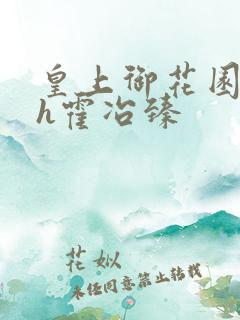 皇上御花园
h霍冶臻
花姒
未经同意禁止转载